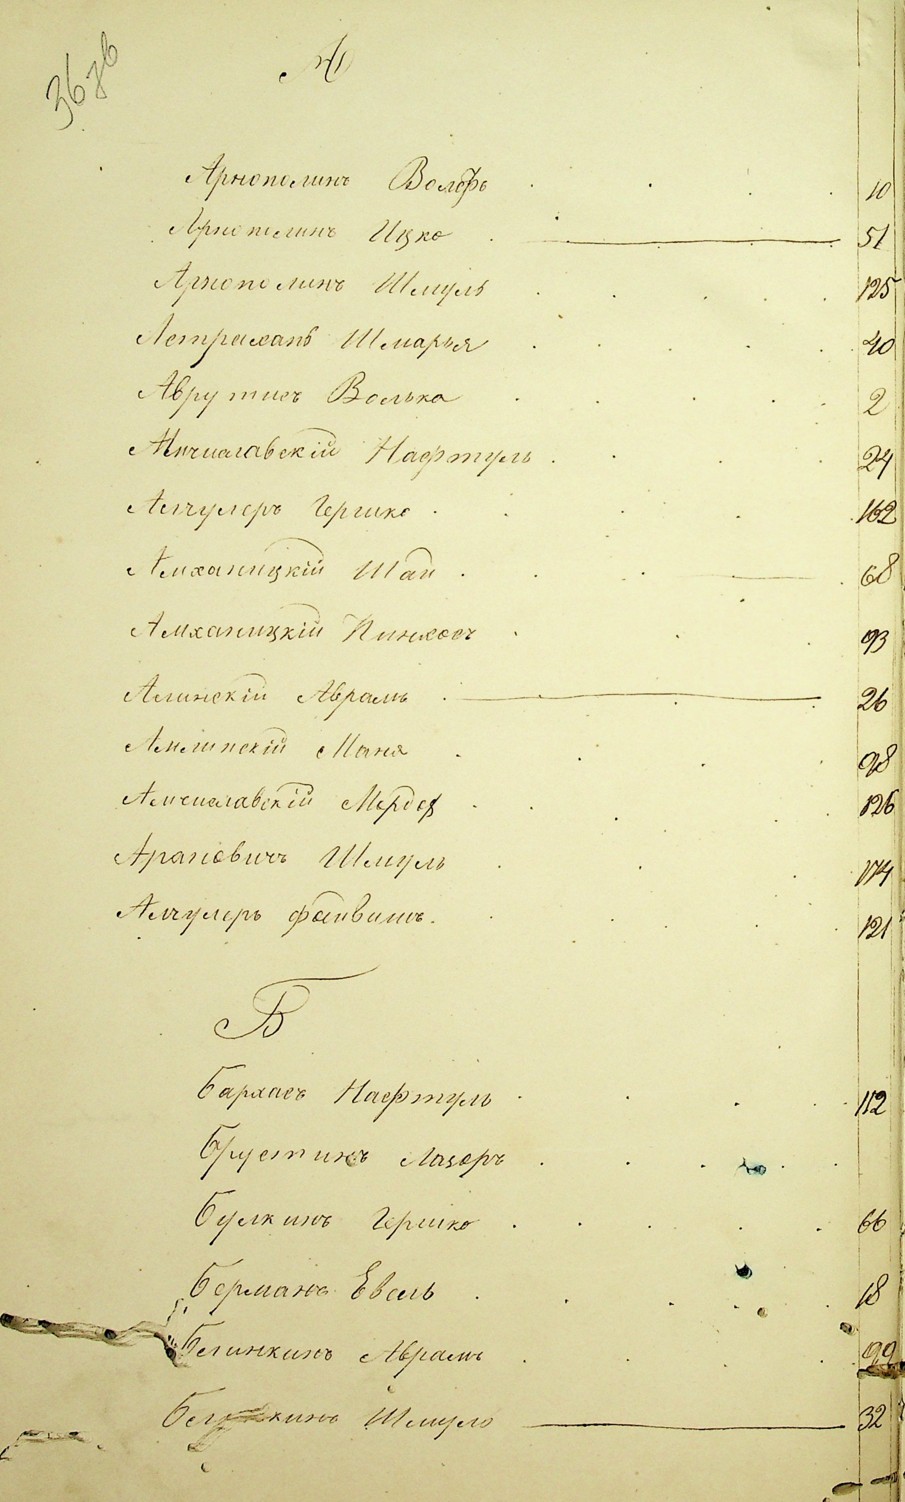 А
Арнополинъ Вольфъ 10
Арнополинъ Ицко 51
Арнополинъ Шмуль 125
Астраханъ Шмарья 40
Аврутисъ Волька 2
Нафтуль 24
Алчулеръ Гершко 162
Амханицкій Шай 68
Амханицкій Пинхосъ 93
Алинскій Абрамъ 26
Амлинскій Маня 98
Амчиславскій 126
Ароновичъ Шмуль 174
Алчулеръ Файвишъ 121
Б
Бархасъ Нафтуль 112
Брустинъ Лазеръ
Булкинъ Гершко 66
Берманъ Евель 18
Белинкинъ Абрамъ 99
Шмуль 32